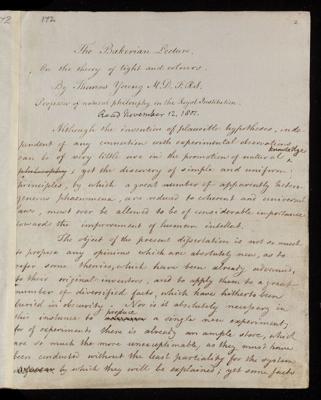 172.
2
The Bakerian Lecture,
On the theory of light and colours.
By Thomas Young M.D. F.R.S.
Professor of natural philosophy in the Royal Institution.
Read November 12, 1801.
Although the invention of plausible hypotheses, inde-
pendent of any connection with experimental observations
can be of very little use in the promotion of natural knowledge
philosophy; yet the discovery of simple and uniform
principles, by which a great number of apparently hetero-
geneous phaenomena, are reduced to coherent and universal
laws, must ever be allowed to be of considerable importance
towards the improvement of human intellect.
The object of the present dissertation is not so much
to propose any opinions which are absolutely new, as to
refer some theories, which have been already advanced,
to their original inventors, and to apply them to a great
number of diversified facts, which have hitherto been
buried in obscurity. Nor is it absolutely necessary in
this instance to produce a single new experiment;
for of experiments there is already an ample store, which
are so much the more unexceptionable, as they must have
been conducted without the least partiality for the system
by which they will be explained; yet some facts